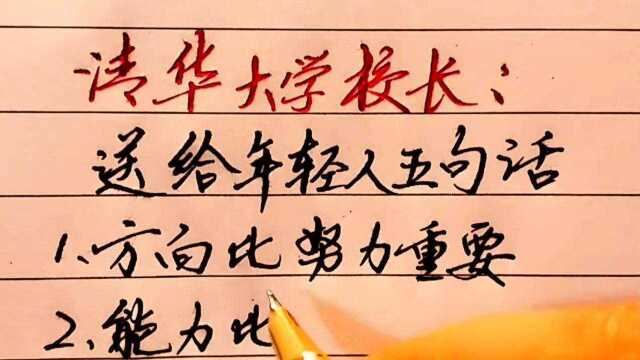 清华大学校长:
送给年轻人五句话
1、方向比努力重要
2、能力比